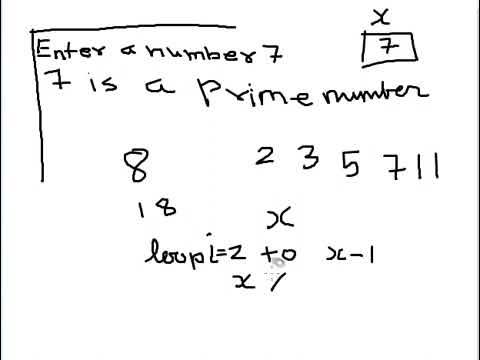 x
Enter a number 7 7
7 is a prime number
8 2 3 5 7 11
18 x
loop i=2 to x-1
x /